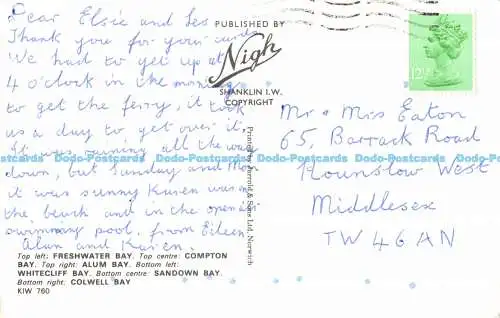 Dear Elsie and Les
Thank you for your cards
We had to get up at
4 o'clock in the morning
to get the ferry, it took
us a day to get over it.
It was raining all the way
down, but Sunday and Mon
it was sunny Karen was on
the beach and in the open air
swimmy pool, from Eileen
Alan and Karen.
Top left: FRESHWATER BAY. Top centre: COMPTON
BAY. Top right: ALUM BAY. Bottom left:
WHITECLIFF BAY. Bottom centre: SANDOWN BAY.
Bottom right: COLWELL BAY
KIW 760
PUBLISHED BY
Nigh
SHANKLIN I.W.
COPYRIGHT
Printed by Jarrold & Sons Ltd, Norwich
12½P
Mr & Mrs Eaton
65, Barrack Road
Hounslow West
Middlesex
TW4 6AN
Dodo-Postcards Dodo-Postcards Dodo-Postcards Dodo-Postcards Dodo-Postcards